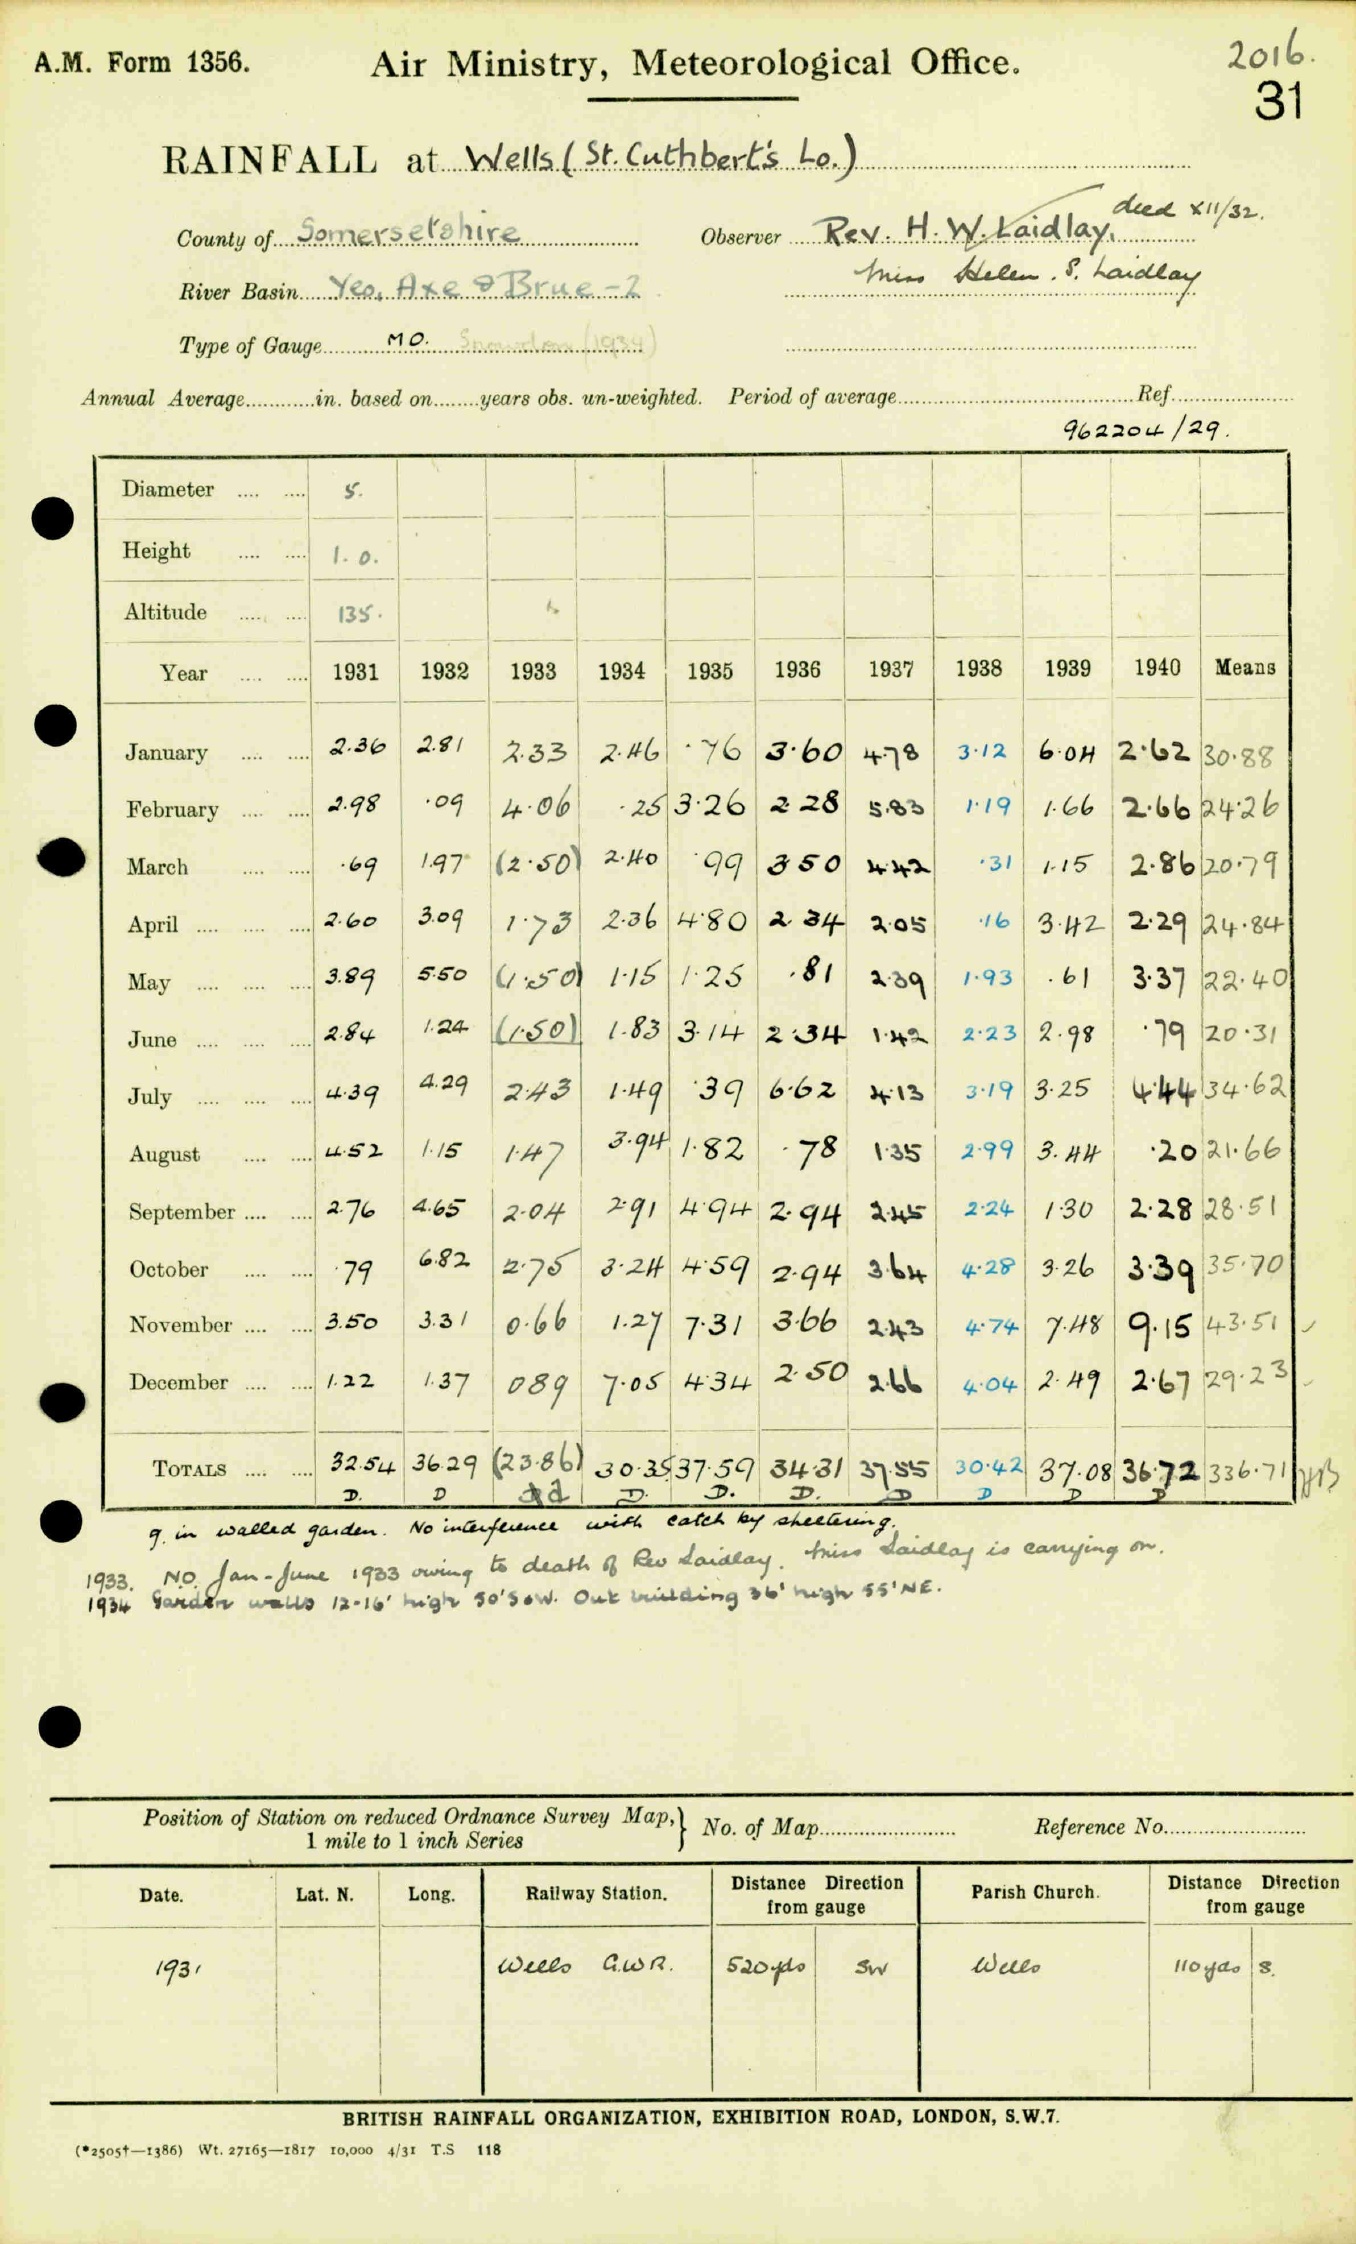 2016.
A.M. Form 1356. Air Ministry, Meteorological Office.
31
RAINFALL at Wells (St. Cuthbert's Lo.)
died XII/32.
County of Somersetshire Observer Rev. H. W. Laidlay,
Miss Helen. S. Laidlay
River Basin Yeo, Axe & Brue -2
Type of Gauge MO. Snowdon (1934)
Annual Average in. based on years obs. un-weighted. Period of average Ref.
962204/29.
Diameter 5.
Height 1. 0.
Altitude 135.
Year 1931 1932 1933 1934 1935 1936 1937 1938 1939 1940 Means
January 2.36 2.81 2.33 2.46 .76 3.60 4.78 3.12 6.04 2.62 30.88
February 2.98 .09 4.06 .25 3.26 2.28 5.83 1.19 1.66 2.66 24.26
March .69 1.97 (2.50) 2.40 .99 3 50 4.42 .31 1.15 2.86 20.79
April 2.60 3.09 1.73 2.36 4.80 2.34 2.05 .16 3.42 2.29 24.84
May 3.89 5.50 (1.50) 1.15 1.25 .81 2.39 1.93 .61 3.37 22.40
June 2.84 1.24 (1.50) 1.83 3.14 2.34 1.42 2.23 2.98 .79 20.31
July 4.39 4.29 2.43 1.49 .39 6.62 4.13 3.19 3.25 4.44 34.62
August 4.52 1.15 1.47 3.94 1.82 .78 1.35 2.99 3.44 .20 21.66
September 2.76 4.65 2.04 2.91 4.94 2.94 2.45 2.24 1.30 2.28 28.51
October .79 6.82 2.75 3.24 4.59 2.94 3.64 4.28 3.26 3.39 35.70
November 3.50 3.31 0.66 1.27 7.31 3.66 2.43 4.74 7.48 9.15 43.51
December 1.22 1.37 0 89 7.05 4.34 2.50 2.66 4.04 2.49 2.67 29.23
TOTALS 32.54 36.29 (23.86) 30.35 37.59 34.31 37.55 30.42 37.08 36.72 336.71
D. D d D. D. D. D D D D
g. in walled garden. No interference with catch by sheltering.
1933. N.O. Jan - June 1933 owing to death of Rev Laidlay. Miss Laidlay is carrying on.
1934 Garden walls 12-16' high 50' S & W. Out building 36' high 55' NE.
Position of Station on reduced Ordnance Survey Map, 1 mile to 1 inch Series } No. of Map Reference No.
Date. Lat. N. Long. Railway Station. Distance Direction from gauge Parish Church. Distance Direction from gauge
1931 Wells G.W.R. 520 yds SW Wells 110 yds S.
BRITISH RAINFALL ORGANIZATION, EXHIBITION ROAD, LONDON, S.W.7.
(*2505†—1386) Wt. 27165—1817 10,000 4/31 T.S 118